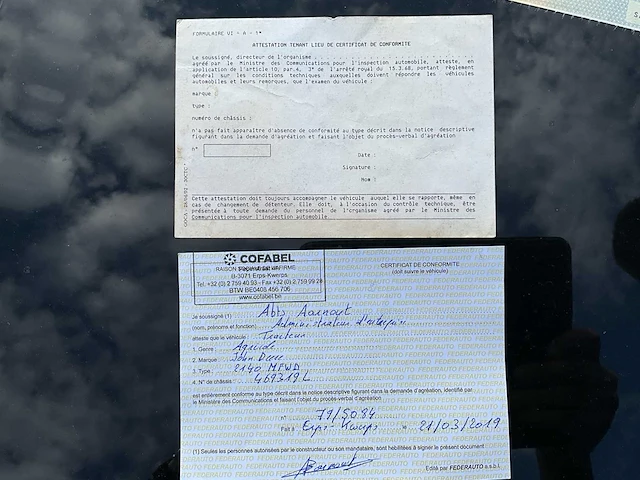 FORMULAIRE VI - A - 1*
ATTESTATION TENANT LIEU DE CERTIFICAT DE CONFORMITE
Le soussigné, directeur de l'organisme . . . . . . . . . . . . . . . .
agréé par le Ministre des Communications pour l'inspection automobile, atteste, en
application de l'article 10, par.4, 3° de l'arrêté royal du 15.3.68, portant règlement
général sur les conditions techniques auxquelles doivent répondre les véhicules
automobiles et leurs remorques, que l'examen du véhicule :
marque :
type :
numéro de châssis :
n'a pas fait apparaître d'absence de conformité au type décrit dans la notice descriptive
figurant dans la demande d'agréation et faisant l'objet du procès-verbal d'agréation
n°
Date :
Signature :
Nom :
Cette attestation doit toujours accompagner le véhicule auquel elle se rapporte, même en
cas de changement de détenteur. Elle doit, à l'occasion du contrôle technique, être
présentée à toute demande du personnel de l'organisme agréé par le Ministre des
Communications pour l'inspection automobile.
COFABEL
CERTIFICAT DE CONFORMITE
(doit suivre le véhicule)
B-3071 Erps-Kwerps
Tel. +32 (0) 2 759 40 93 - Fax +32 (0) 2 759 99 28
BTW BE0408 456 706
www.cofabel.be
Je soussigné (1) Abts Aarnout
(nom, prénoms et fonction) Administrateur d'entreprise
atteste que le véhicule: Tracteur
1. Genre : Agricole
2. Marque : John Deere
3. Type : 2140 MFWD
4. N° de châssis : 469319L
est entièrement conforme au type décrit dans la notice descriptive figurant dans la demande d'agréation, identifié par
le Ministère des Communications et faisant l'objet du procès-verbal d'agréation
n° 79/5084
Fait à Erps-Kwerps le 21/03/2019
(1) Seules les personnes autorisées par le constructeur ou son mandataire, sont habilitées à signer le présent document.
Edité par FEDERAUTO a.s.b.l.